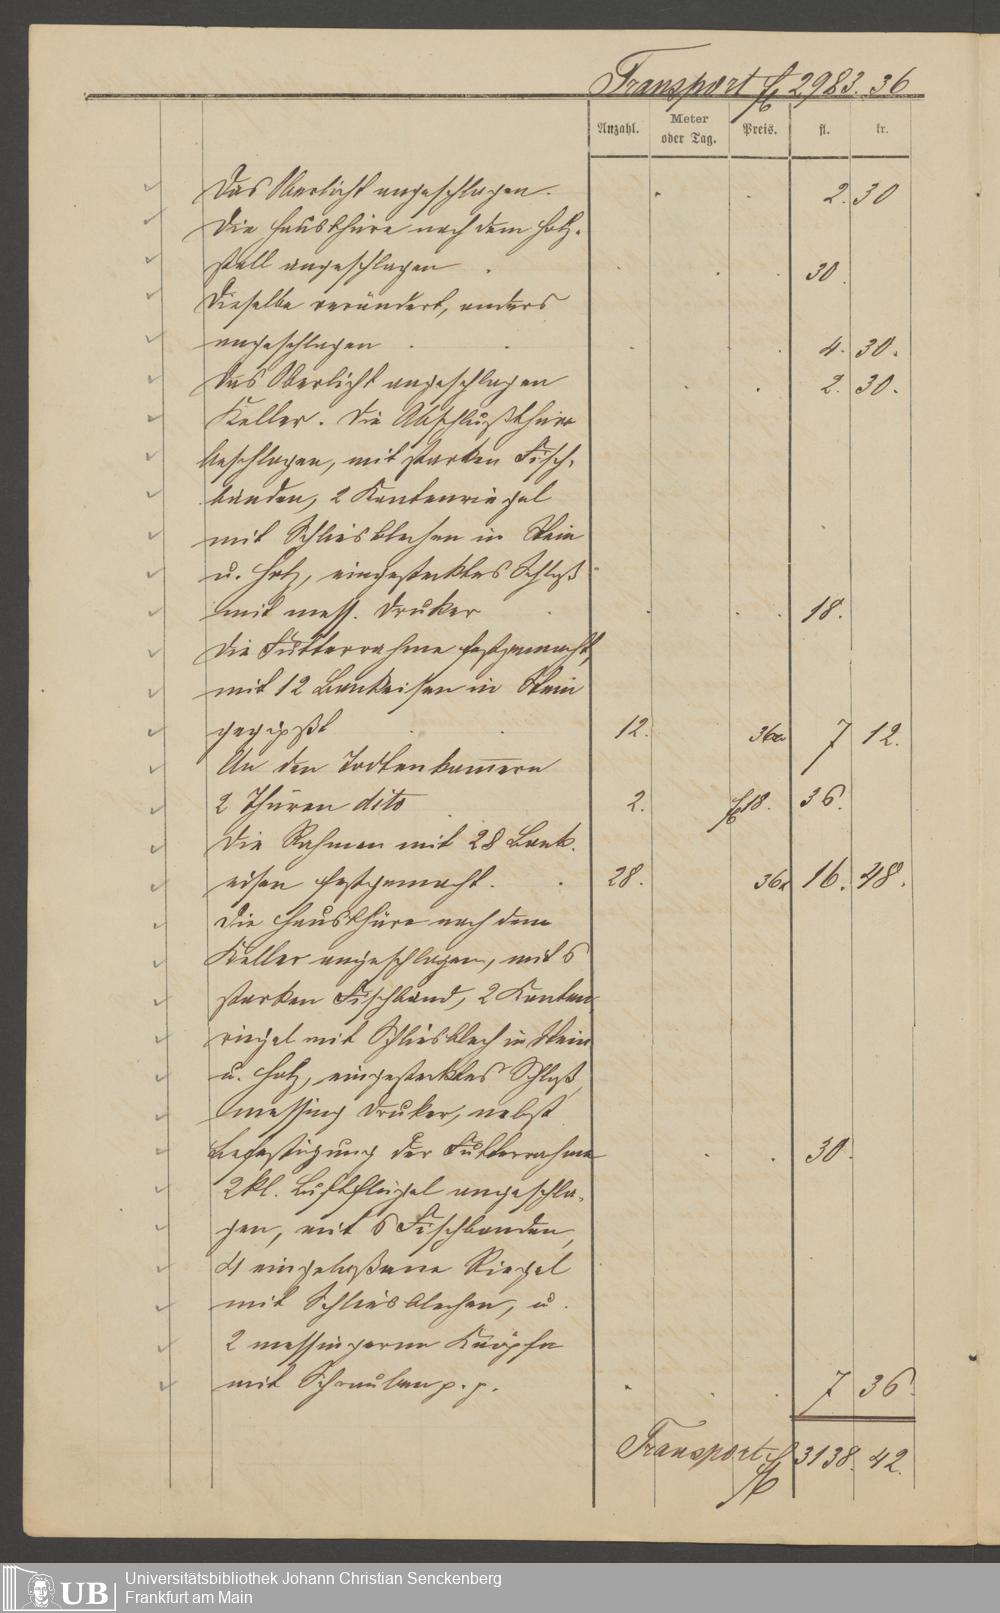 Transport fl 2983. 36
Anzahl. Meter oder Tag. Preis. fl. kr.
Das Oberlicht angeschlagen. 2. 30
Die Hausthüre nach dem Holz-
stall angeschlagen 30.
Dieselbe verändert, anders
angeschlagen 4. 30.
Das Oberlicht angeschlagen 2. 30.
Keller. Die Abschlußthüre
beschlagen, mit starken Fisch-
bänden, 2 Kantenriegel
mit Schliesblechen in Stein
u. Holz, eingestecktes Schloß
mit mess. Druker 18.
Die Futterrahme festgemacht,
mit 12 Bankeisen in Stein
gegipßt 12. 36 7 12.
An den Todtenkam̄ern
2 Thüren dito 2. fl 18. 36.
Die Rahmen mit 28 Bank-
eisen festgemacht. 28. 36 16. 48.
Die Hausthüre nach dem
Keller angeschlagen, mit 6
starken Fischband, 2 Kanten-
riegel mit Schliesblech in Stein
u. Holz, eingestecktes Schloß,
messing Druker, nebst
Befestigung der Futterrahme 30.
2 kl. Luftflügel angeschla-
gen, mit 6 Fischbanden,
4 eingelaßene Riegel
mit Schliesblechen, u.
2 messingerne Knöpfe
mit Schrauben p. p. 7 36.
Transport fl 3138. 42.
UB Universitätsbibliothek Johann Christian Senckenberg
Frankfurt am Main